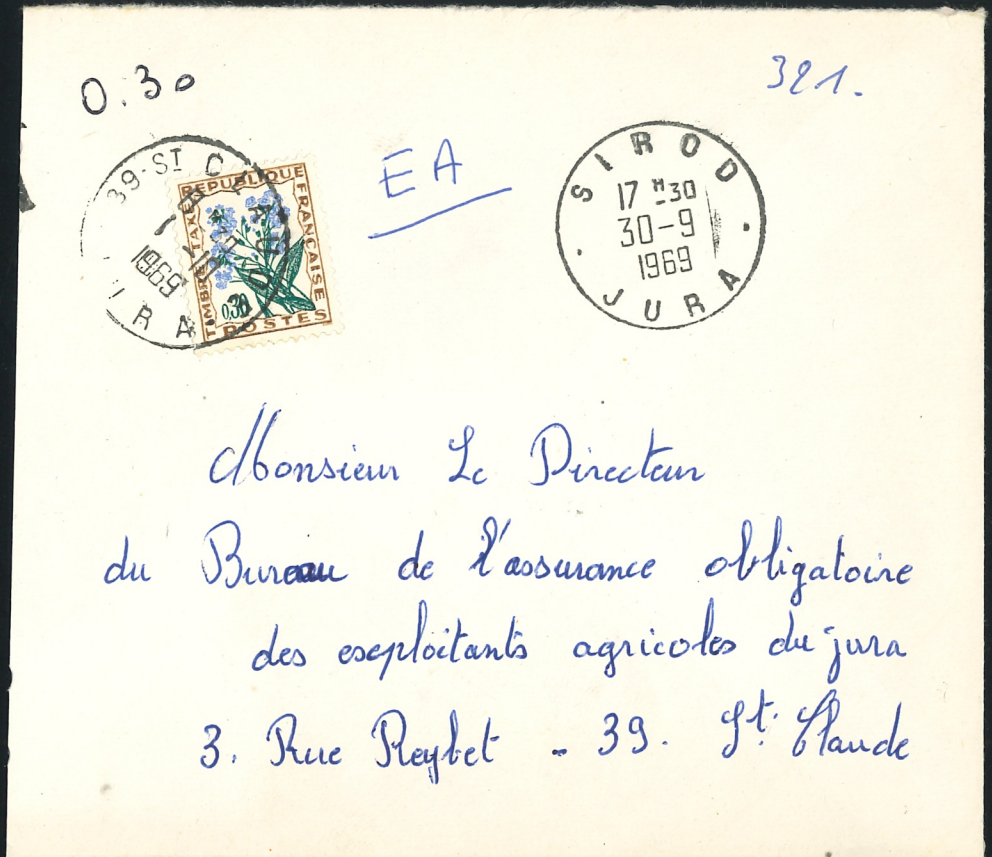 0.30
321.
EA
39-ST CLAUDE
1969
JURA
REPUBLIQUE
FRANCAISE
TIMBRE TAXE
0,30
POSTES
SIROD
17 H-30
30-9
1969
JURA
Monsieur Le Directeur
du Bureau de l'assurance obligatoire
des exploitants agricoles du jura
3. Rue Reybet - 39. St. Claude